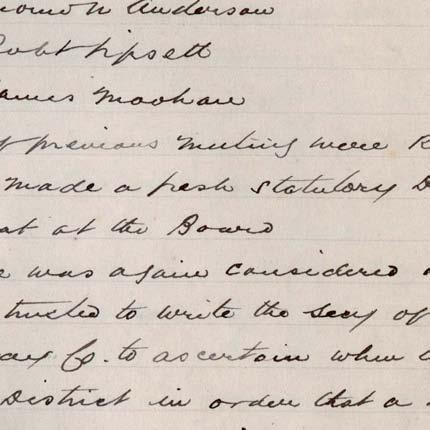 Anderson
Robt Lipsett
James Moohan
previous meeting were
made a fresh statutory
at at the Board
was again considered
tructed to write the secy of
way Co. to ascertain when
District in order that a